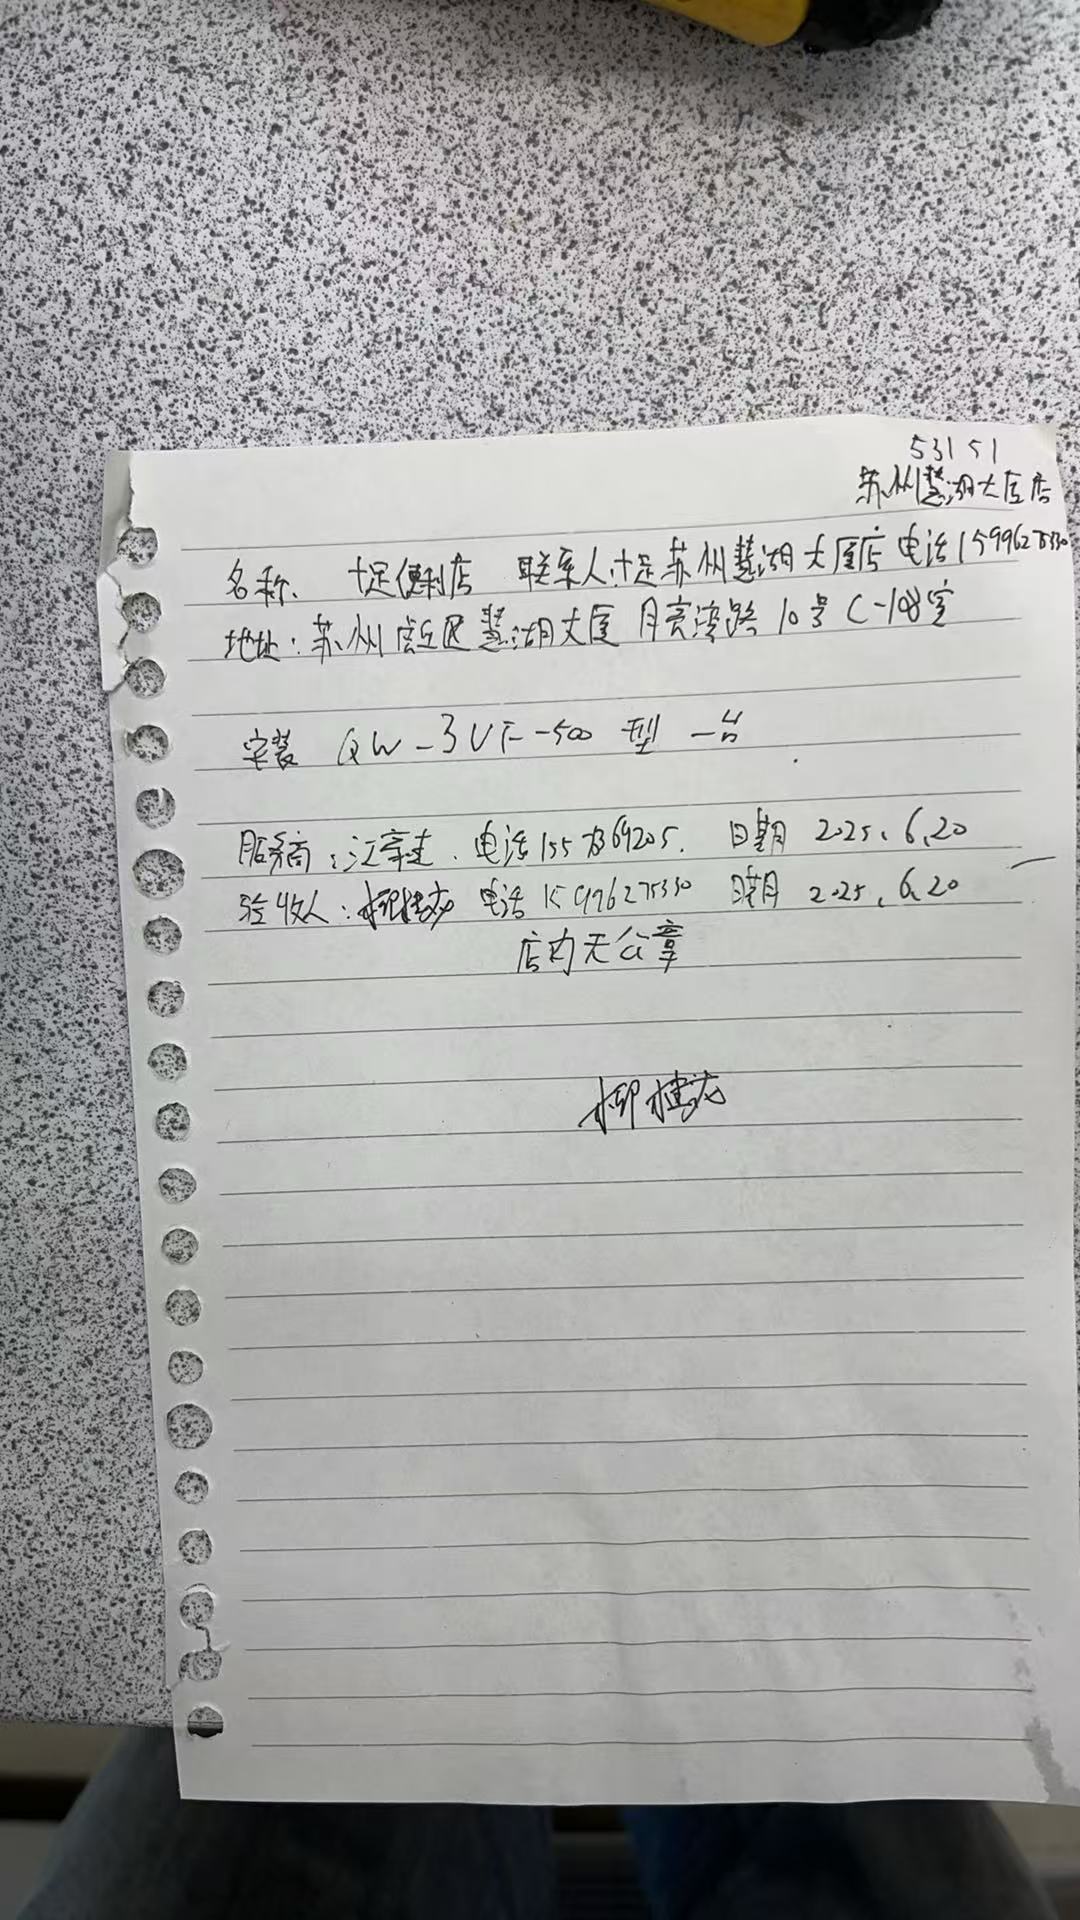 53151
苏州慧湖大厦店
名称、十足便利店 联系人:十足苏州慧湖大厦店 电话15996275330
地址:苏州 慧湖大厦 月亮湾路10号C-108室
安装 QW-3VF-500 型 一台
服务商: 电话155 69205. 日期 2025.6.20
验收人: 电话15996275330 日期 2025.6.20
店内无公章